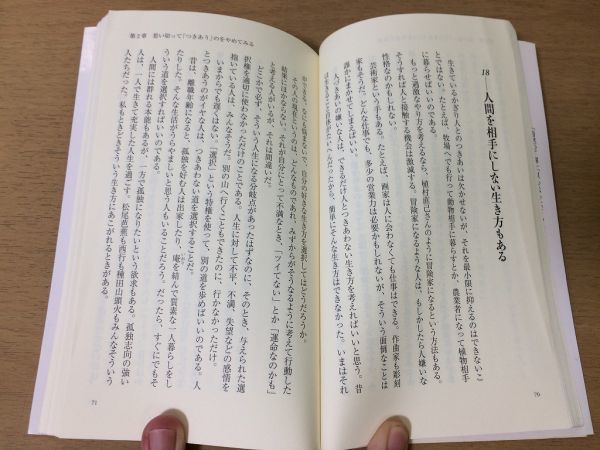 18 人間を相手にしない生き方もある
生きているかぎり人とのつきあいは欠かせないが、それを最小限に抑えるのはできないこ
とではない。たとえば、牧場へでも行って動物相手に暮らすとか、農業者になって植物相手
に暮らせばいいのである。
もっと過激なやり方を考えるなら、植村直己さんのように冒険家になるという方法もある。
そうすれば人と接触する機会は激減する。冒険家になるような人は、もしかしたら人嫌いな
性格なのかもしれない。
芸術家という手もある。たとえば、画家は人に会わなくても仕事はできる。作曲家も彫刻
家もそうだ。どんな仕事でも、多少の営業力は必要かもしれないが、そういう面倒なことは
誰かにまかせてしまえばいい。
人づきあいの嫌いな人は、できるだけ人とつきあわない生き方を考えればいいと思う。昔
簡単にそんな生き方はできなかった。いまはそれ
70
第2章 思い切って「つきあう」のをやめてみる
自分の好きな生き方を選択してはどうだろうか。
その人の現在というのは、どんなものであれ、みずからがそうなるように考えて行動した
結果にほかならない。それが自分にとって不満なとき、「ツイてない」とか「運命なのかも」
と考える人がいるが、それは間違いだ。
どこかで必ず、そういう人生になる分岐点があったはずなのに、そのとき、与えられた選
択権を適切に使わなかっただけのことである。人生に対して不平、不満、失望などの感情を
抱いている人は、みんなそうだ。別の山へ行くこともできたのに、行かなかっただけ。
いまからでも遅くはない。「選択」という特権を使って、別の道を歩めばいいのである。人
とつきあうのがイヤな人は、つきあわない道を選択することだ。
昔は、離職年齢になると、孤独を好む人は出家したり、庵を結んで質素な一人暮らしをし
たりした。そんな生活がうらやましいと思う人もいることだろう。だったら、すぐにでもそ
ういう道を選択すればいいのである。
人間には群れる本能もあるが、一方で孤独になりたいという欲求もある。孤独志向の強い
人は、一人で生きて充実した人生を過ごす。松尾芭蕉も西行も種田山頭火もみんなそういう
人たちだった。私もときどきそういう生き方にあこがれるときがある。
71